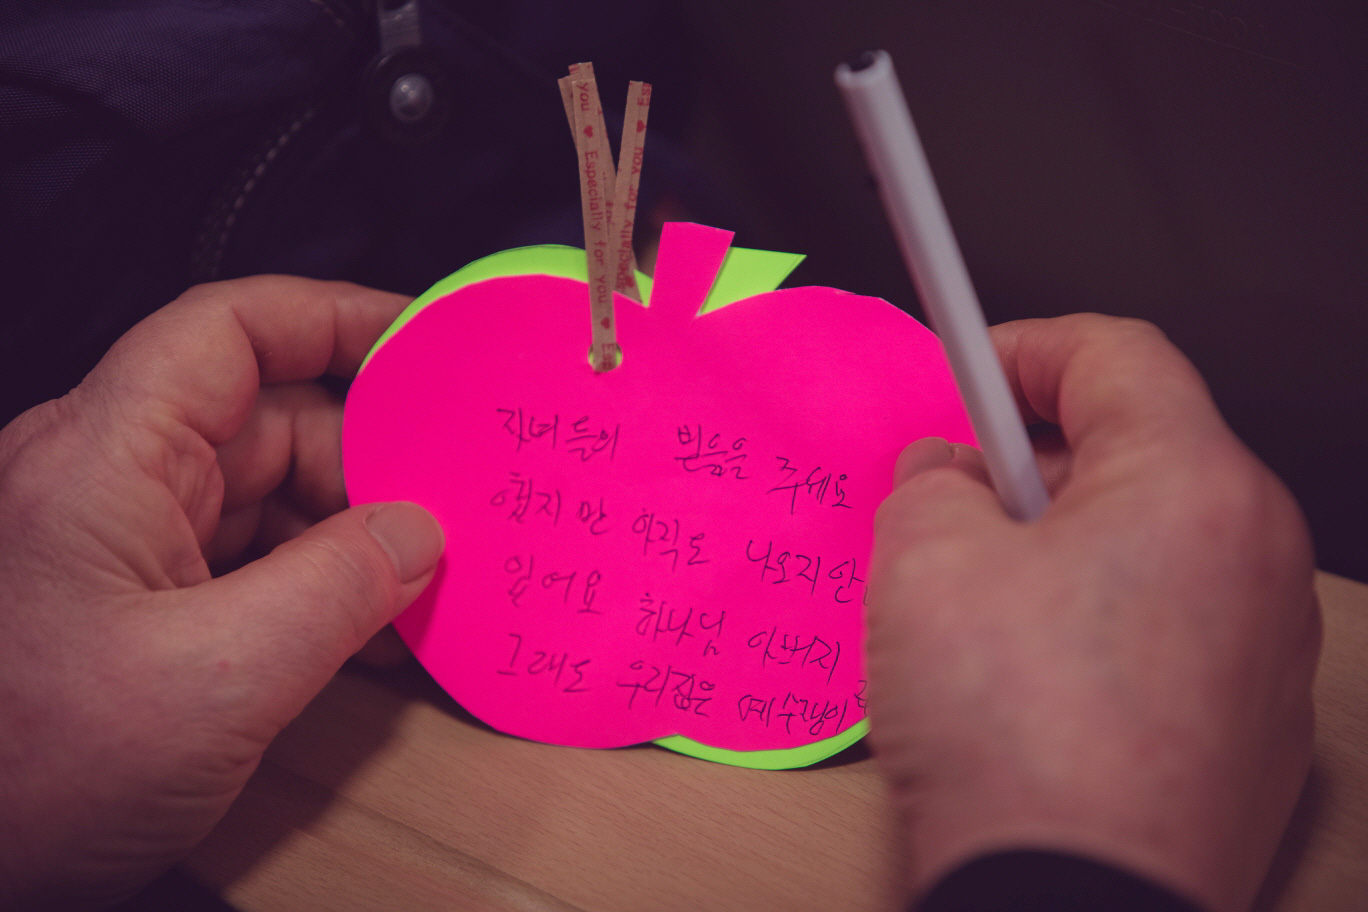 you ♥ Especially for you ♥ Esp
Es
you
ecially for
자녀들의 믿음을 주세요
했지만 아직도 나오지안
있어요 하나님 아버지
그래도 우리집은 예수쟁이